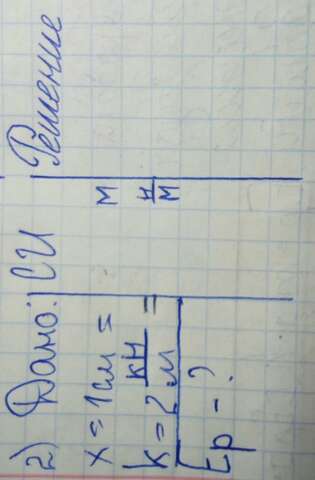 2) Дано: СИ Решение
x = 1 см = м
k = 2 кН/м = Н/м
Ep - ?